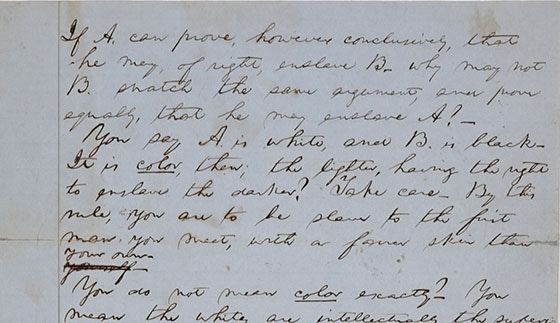 If A. can prove, however conclusively, that
he may, of right, enslave B. why may not
B. snatch the same argument, and prove
equally, that he may enslave A?—
You say A. is white, and B. is black—
It is color, then; the lighter, having the right
to enslave the darker? Take care— By this
rule, you are to be slave to the first
man you meet, with a fairer skin than
your own—
yourself—
You do not mean color exactly?— You
mean the whites are intellectually the superi-